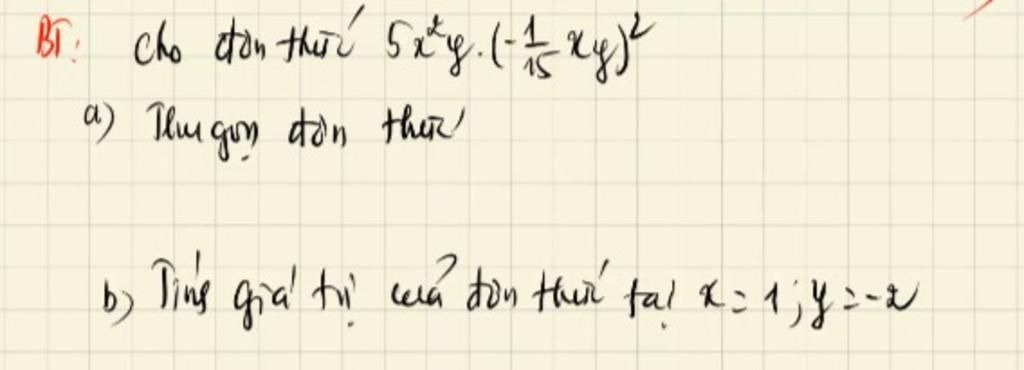 BT: Cho đơn thức 5x²y.(-1/15 xy)²
a) Thu gọn đơn thức
b) Tính giá trị của đơn thức tại x = 1; y = -2